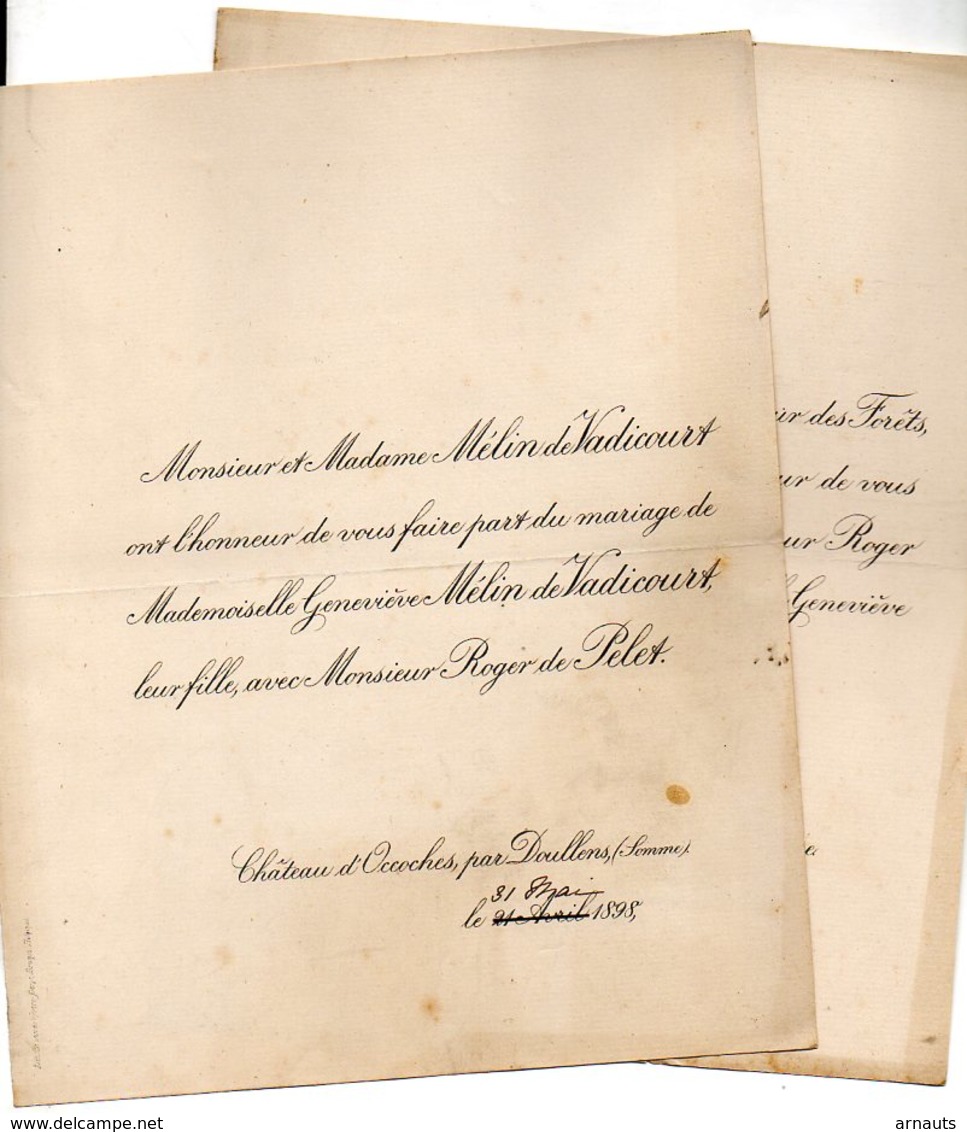 Monsieur et Madame Mélin de Vadicourt
ont l'honneur de vous faire part du mariage de
Mademoiselle Geneviève Mélin de Vadicourt,
leur fille, avec Monsieur Roger de Pelet.
Château d'Occoches, par Doullens, (Somme).
31 Mai
le 21 Avril 1898,
ur des Forêts,
ur de vous
ur Roger
Geneviève
e.
delcampe.net
arnauts